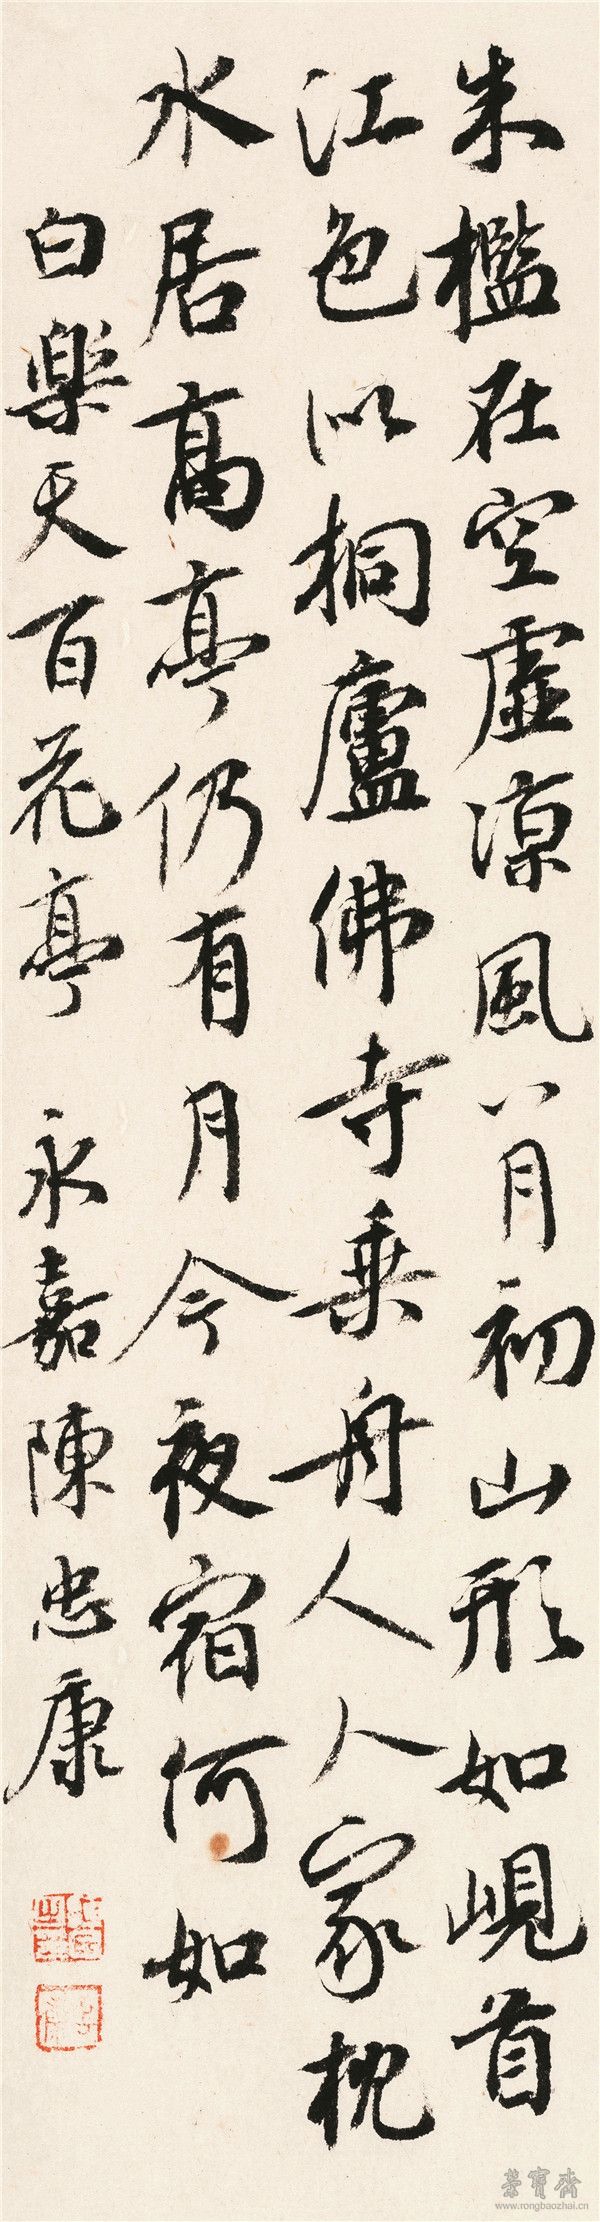 朱檻在空虛涼風八月初山形如峴首
江色似桐廬佛寺乘舟人人家枕
水居高亭仍有月今夜宿何如
白樂天百花亭 永嘉陳忠康
榮寶齋
www.rongbaozhai.cn